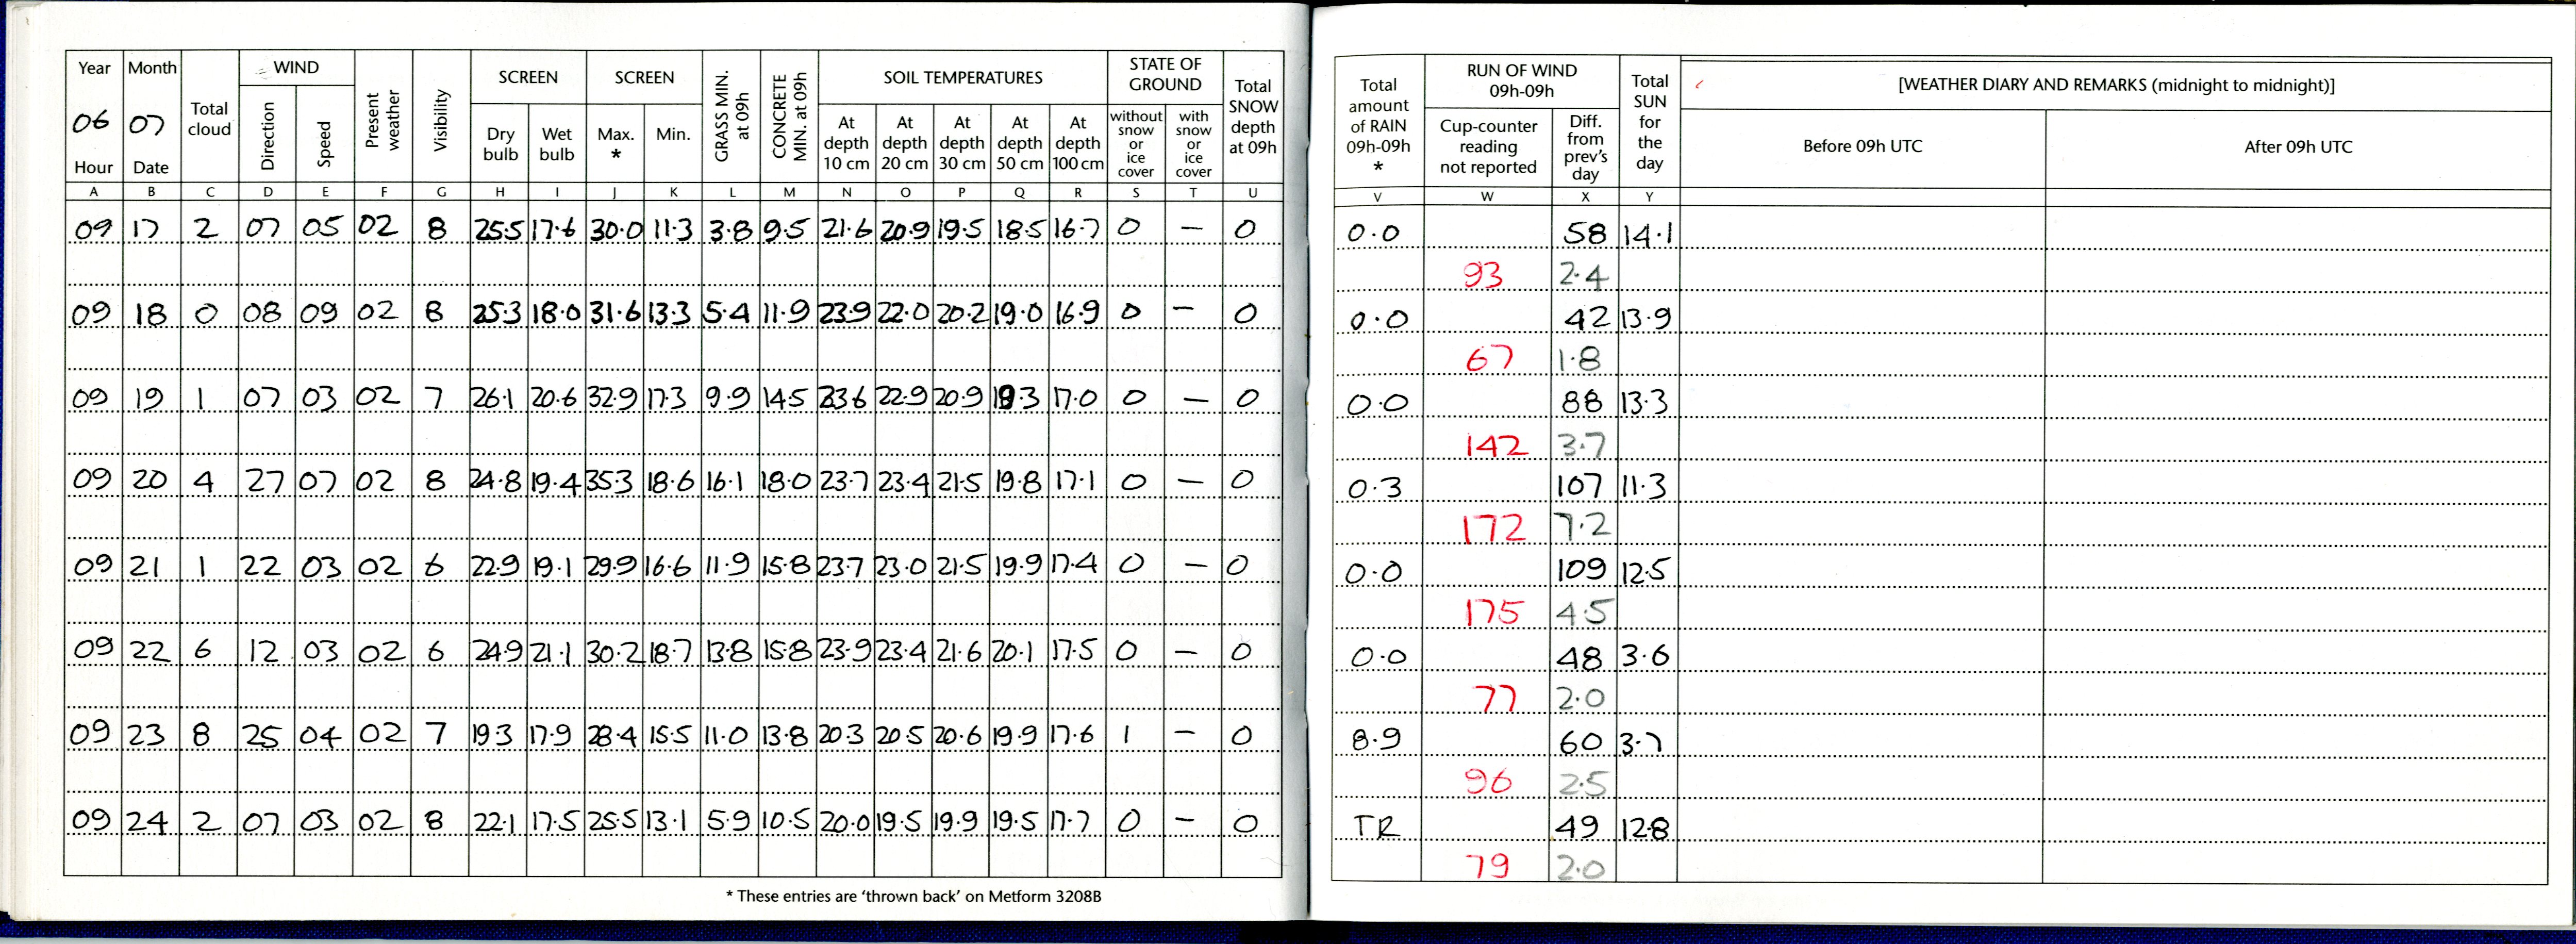 Year Month Total cloud WIND Present weather Visibility SCREEN SCREEN GRASS MIN. at 09h CONCRETE MIN. at 09h SOIL TEMPERATURES STATE OF GROUND Total SNOW depth at 09h
06 07 Direction Speed Dry bulb Wet bulb Max. * Min. At depth 10 cm At depth 20 cm At depth 30 cm At depth 50 cm At depth 100 cm without snow or ice cover with snow or ice cover
Hour Date
A B C D E F G H I J K L M N O P Q R S T U
09 17 2 07 05 02 8 25.5 17.6 30.0 11.3 3.8 9.5 21.6 20.9 19.5 18.5 16.7 0 — 0
09 18 0 08 09 02 8 25.3 18.0 31.6 13.3 5.4 11.9 23.9 22.0 20.2 19.0 16.9 0 — 0
09 19 1 07 03 02 7 26.1 20.6 32.9 17.3 9.9 14.5 23.6 22.9 20.9 19.3 17.0 0 — 0
09 20 4 27 07 02 8 24.8 19.4 35.3 18.6 16.1 18.0 23.7 23.4 21.5 19.8 17.1 0 — 0
09 21 1 22 03 02 6 22.9 19.1 29.9 16.6 11.9 15.8 23.7 23.0 21.5 19.9 17.4 0 — 0
09 22 6 12 03 02 6 24.9 21.1 30.2 18.7 13.8 15.8 23.9 23.4 21.6 20.1 17.5 0 — 0
09 23 8 25 04 02 7 19.3 17.9 28.4 15.5 11.0 13.8 20.3 20.5 20.6 19.9 17.6 1 — 0
09 24 2 07 03 02 8 22.1 17.5 25.5 13.1 5.9 10.5 20.0 19.5 19.9 19.5 17.7 0 — 0
* These entries are ‘thrown back’ on Metform 3208B
Total amount of RAIN 09h-09h * RUN OF WIND 09h-09h Total SUN for the day [WEATHER DIARY AND REMARKS (midnight to midnight)]
Cup-counter reading not reported Diff. from prev's day Before 09h UTC After 09h UTC
V W X Y
0.0 58 14.1
93 2.4
0.0 42 13.9
67 1.8
0.0 88 13.3
142 3.7
0.3 107 11.3
172 7.2
0.0 109 12.5
175 4.5
0.0 48 3.6
77 2.0
8.9 60 3.7
96 2.5
TR 49 12.8
79 2.0